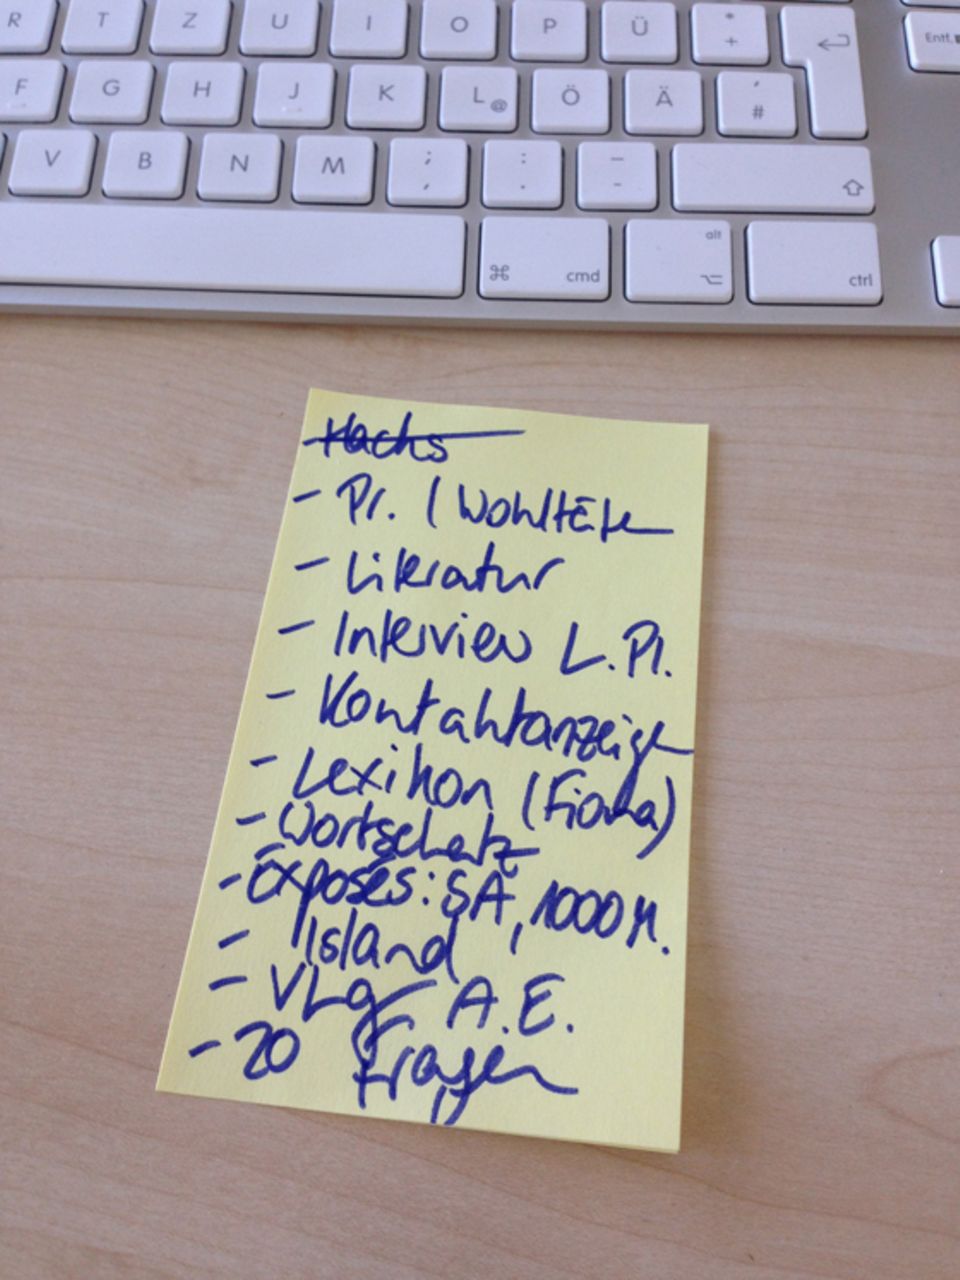 R T Z U I O P Ü * +
Entf.
F G H J K L @ Ö Ä ' #
V B N M ; , : . _ -
⌘ cmd alt ⌥ ctrl
- Pr. / Wohltäter
- Literatur
- Interview L.Pl.
- Kontaktanzeige
- Lexikon (Fiona)
- Wortschatz
- Exposés: SA, 1000 M.
- Island
- VLg A.E.
- 20 Fragen